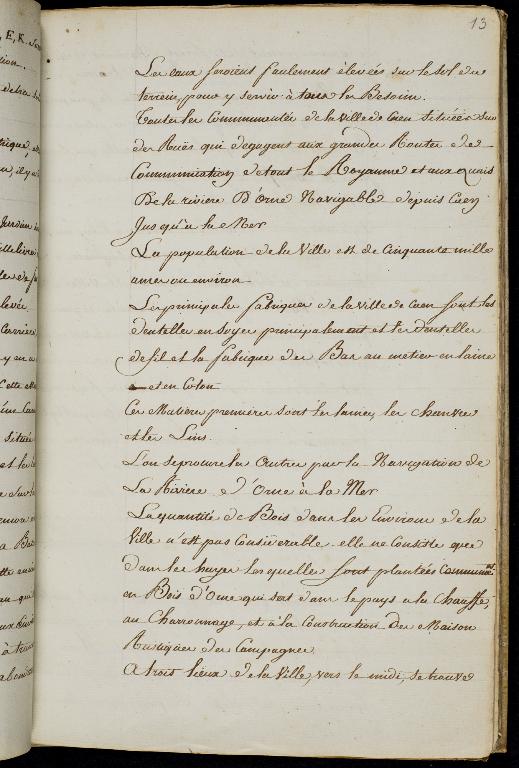 13
Les eaux seroient seulement élevées sur le sol du
terrein, pour y servir à tous les Besoin.
Toutes les Communautés de la Ville de Caen situées sur
des Ruës qui degagent aux grandes Routes de
Communication de tout le Royaume et aux Quais
De la riviere D'orne Navigable depuis Caen
Jusqu'à la Mer
La population de la Ville est de Cinquante mille
ames ou environ
Les principales fabriques de la Ville de Caen sont les
dentelles en soyes principalement et les dentelles
de fil et la fabrique des Bas au metier en laine
et en Coton
Ces Matieres premieres sont les laines, les chanvres
et les Lins.
L'on se procure les autres par la Navigation de
La Riviere d'Orne à la Mer
La quantité de Bois dans les Environs de la
Ville n'est pas Considerable. elle ne Consiste que
dans les hayes lesquelles sont plantées Communém.nt
en Bois d'orme qui sert dans le pays a la Chauffe,
au Charronnage, et à la Construction des Maisons
Rustiques des Campagnes
A trois lieux de la Ville, vers le midi, se trouve
E, K.